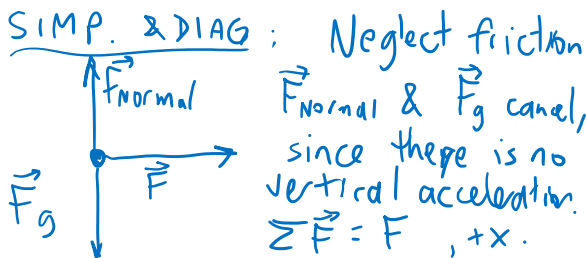 SIMP. & DIAG : Neglect friction
F⃗Normal
F⃗Normal & F⃗g cancel,
since there is no
F⃗
vertical acceleration.
F⃗g
ΣF⃗ = F , +x.